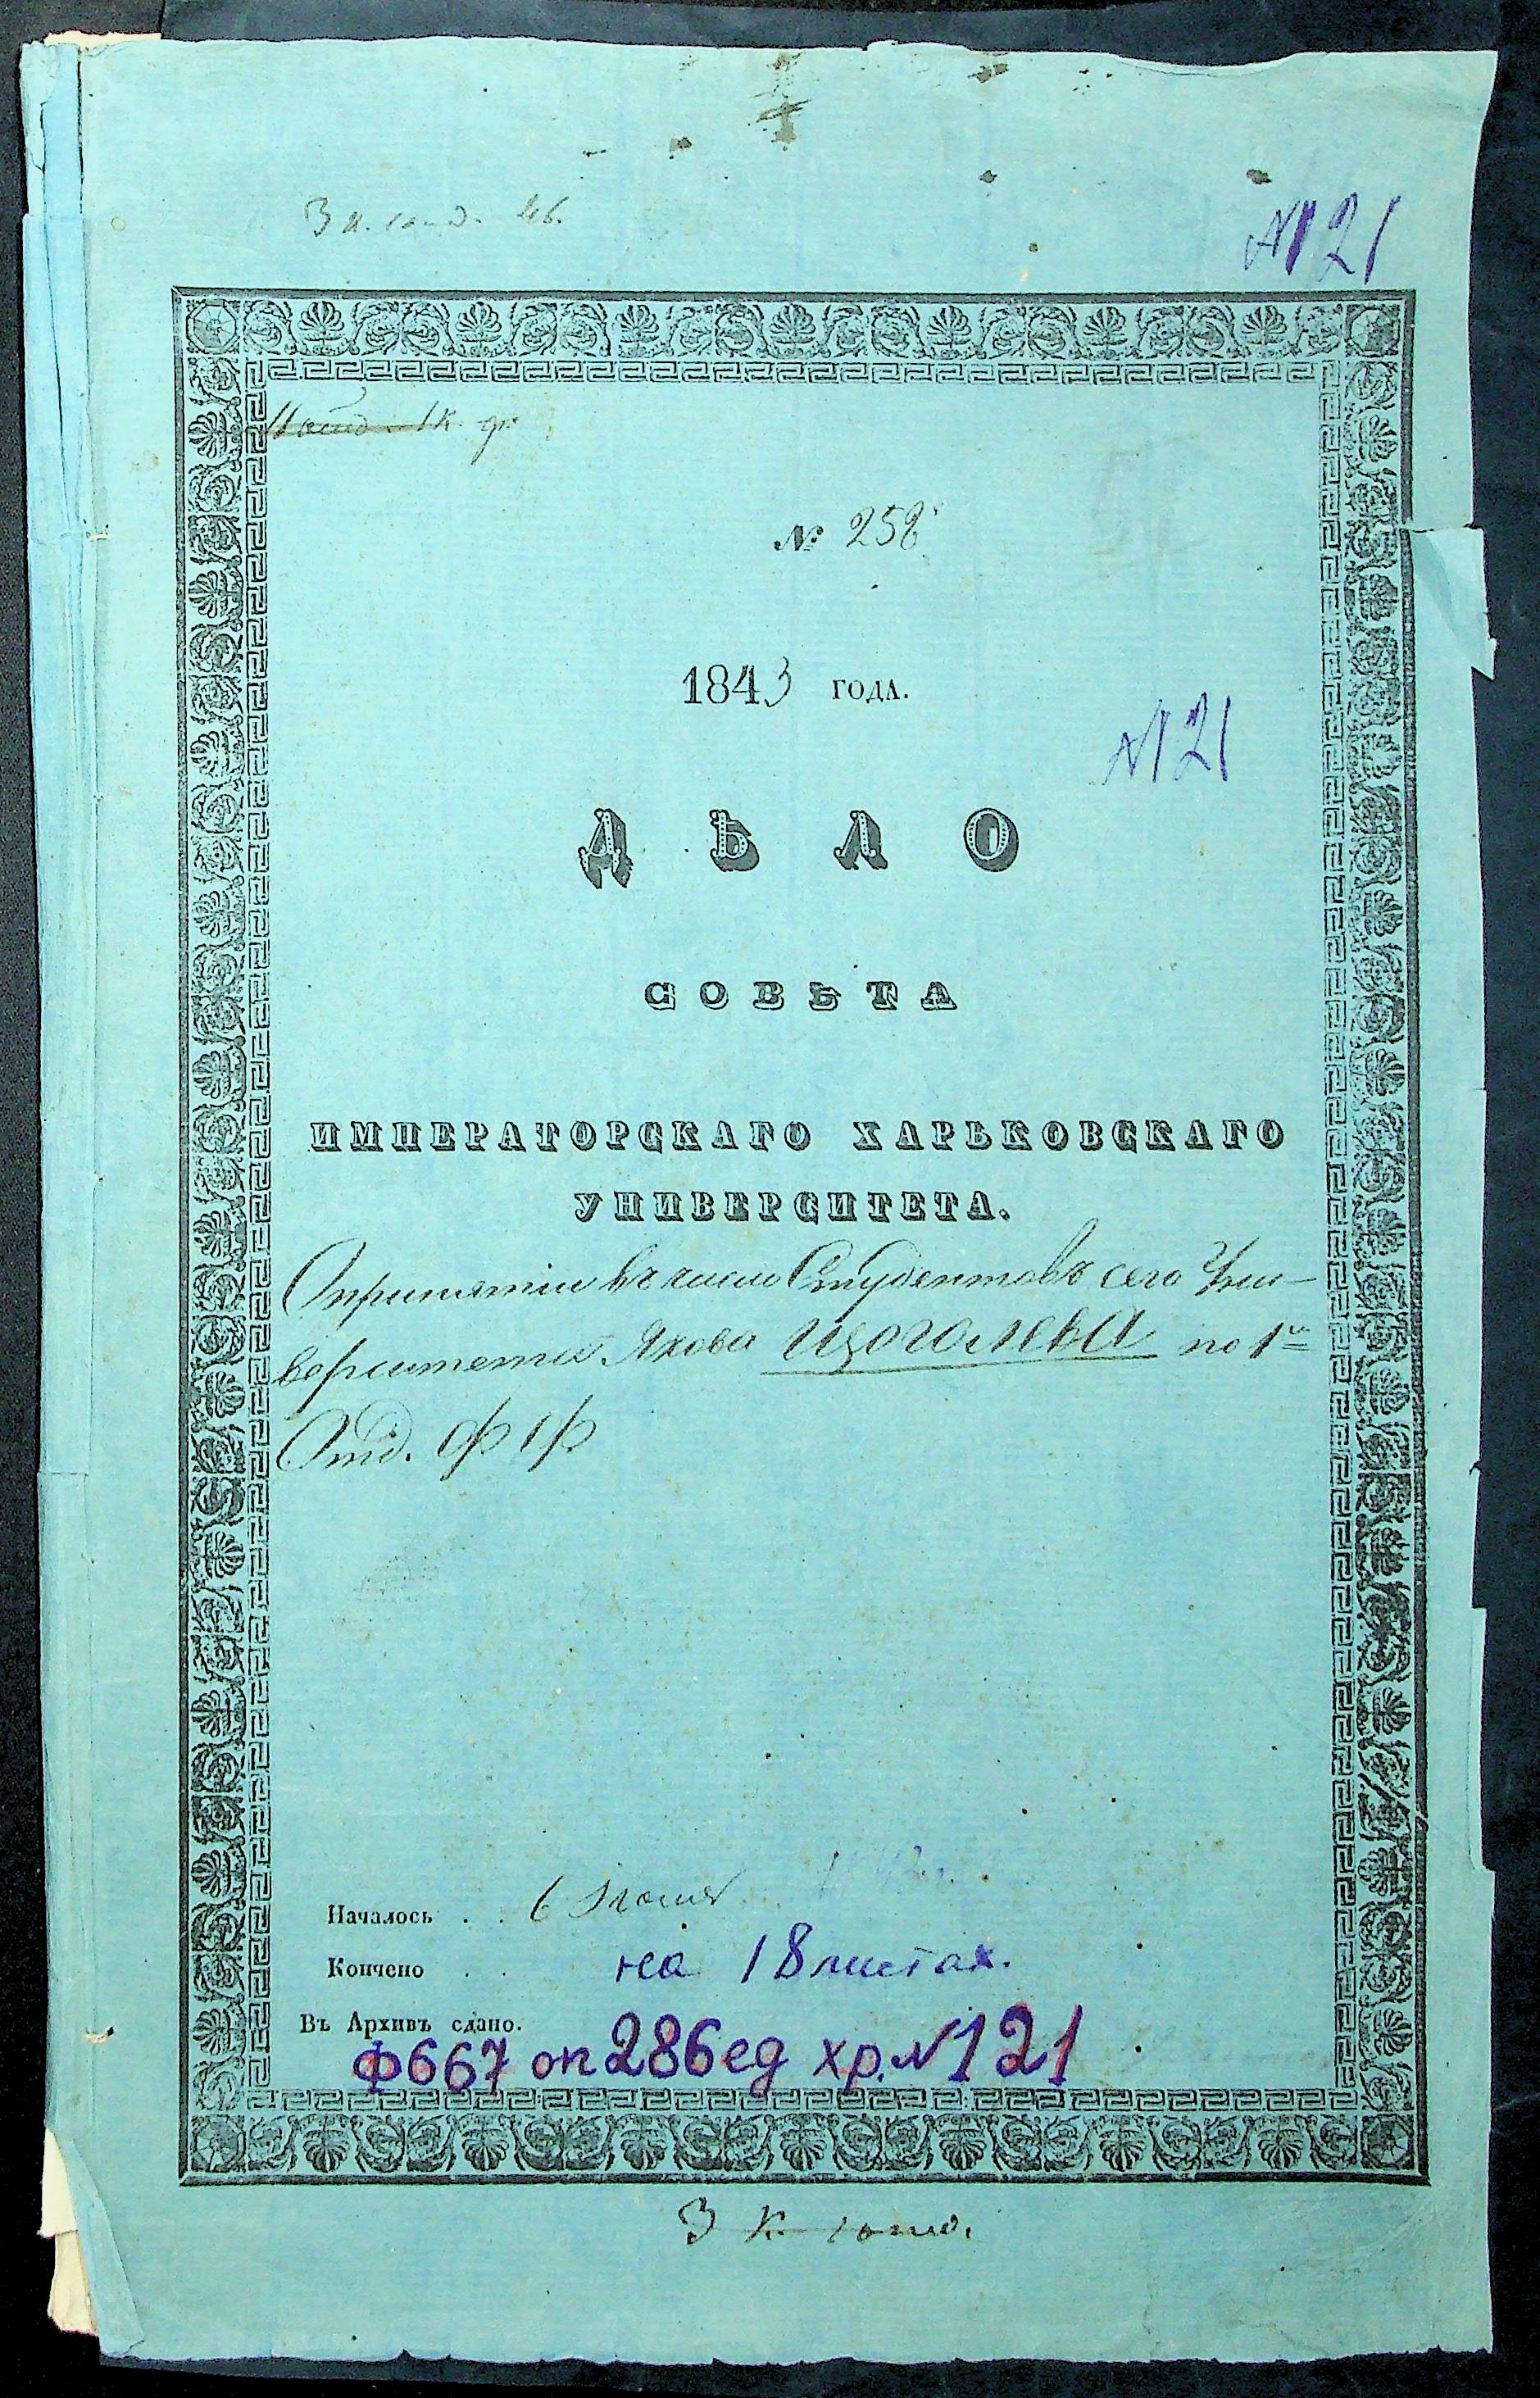 3 к. 1 отд.
№ 121
1 отд. 1 к.
№ 258
1843 ГОДА.
№ 121
ДѢЛО
СОВѢТА
ИМПЕРАТОРСКАГО ХАРЬКОВСКАГО
УНИВЕРСИТЕТА.
О принятіи въ число Студентовъ сего Уни-
верситета Якова Щоголева по 1му
Отд. Ф. Ф.
Началось . . 6 Іюля
Кончено . . на 18 листах.
Въ Архивъ сдано.
Ф667 оп 286 ед хр. № 121
3 к. 1 отд.